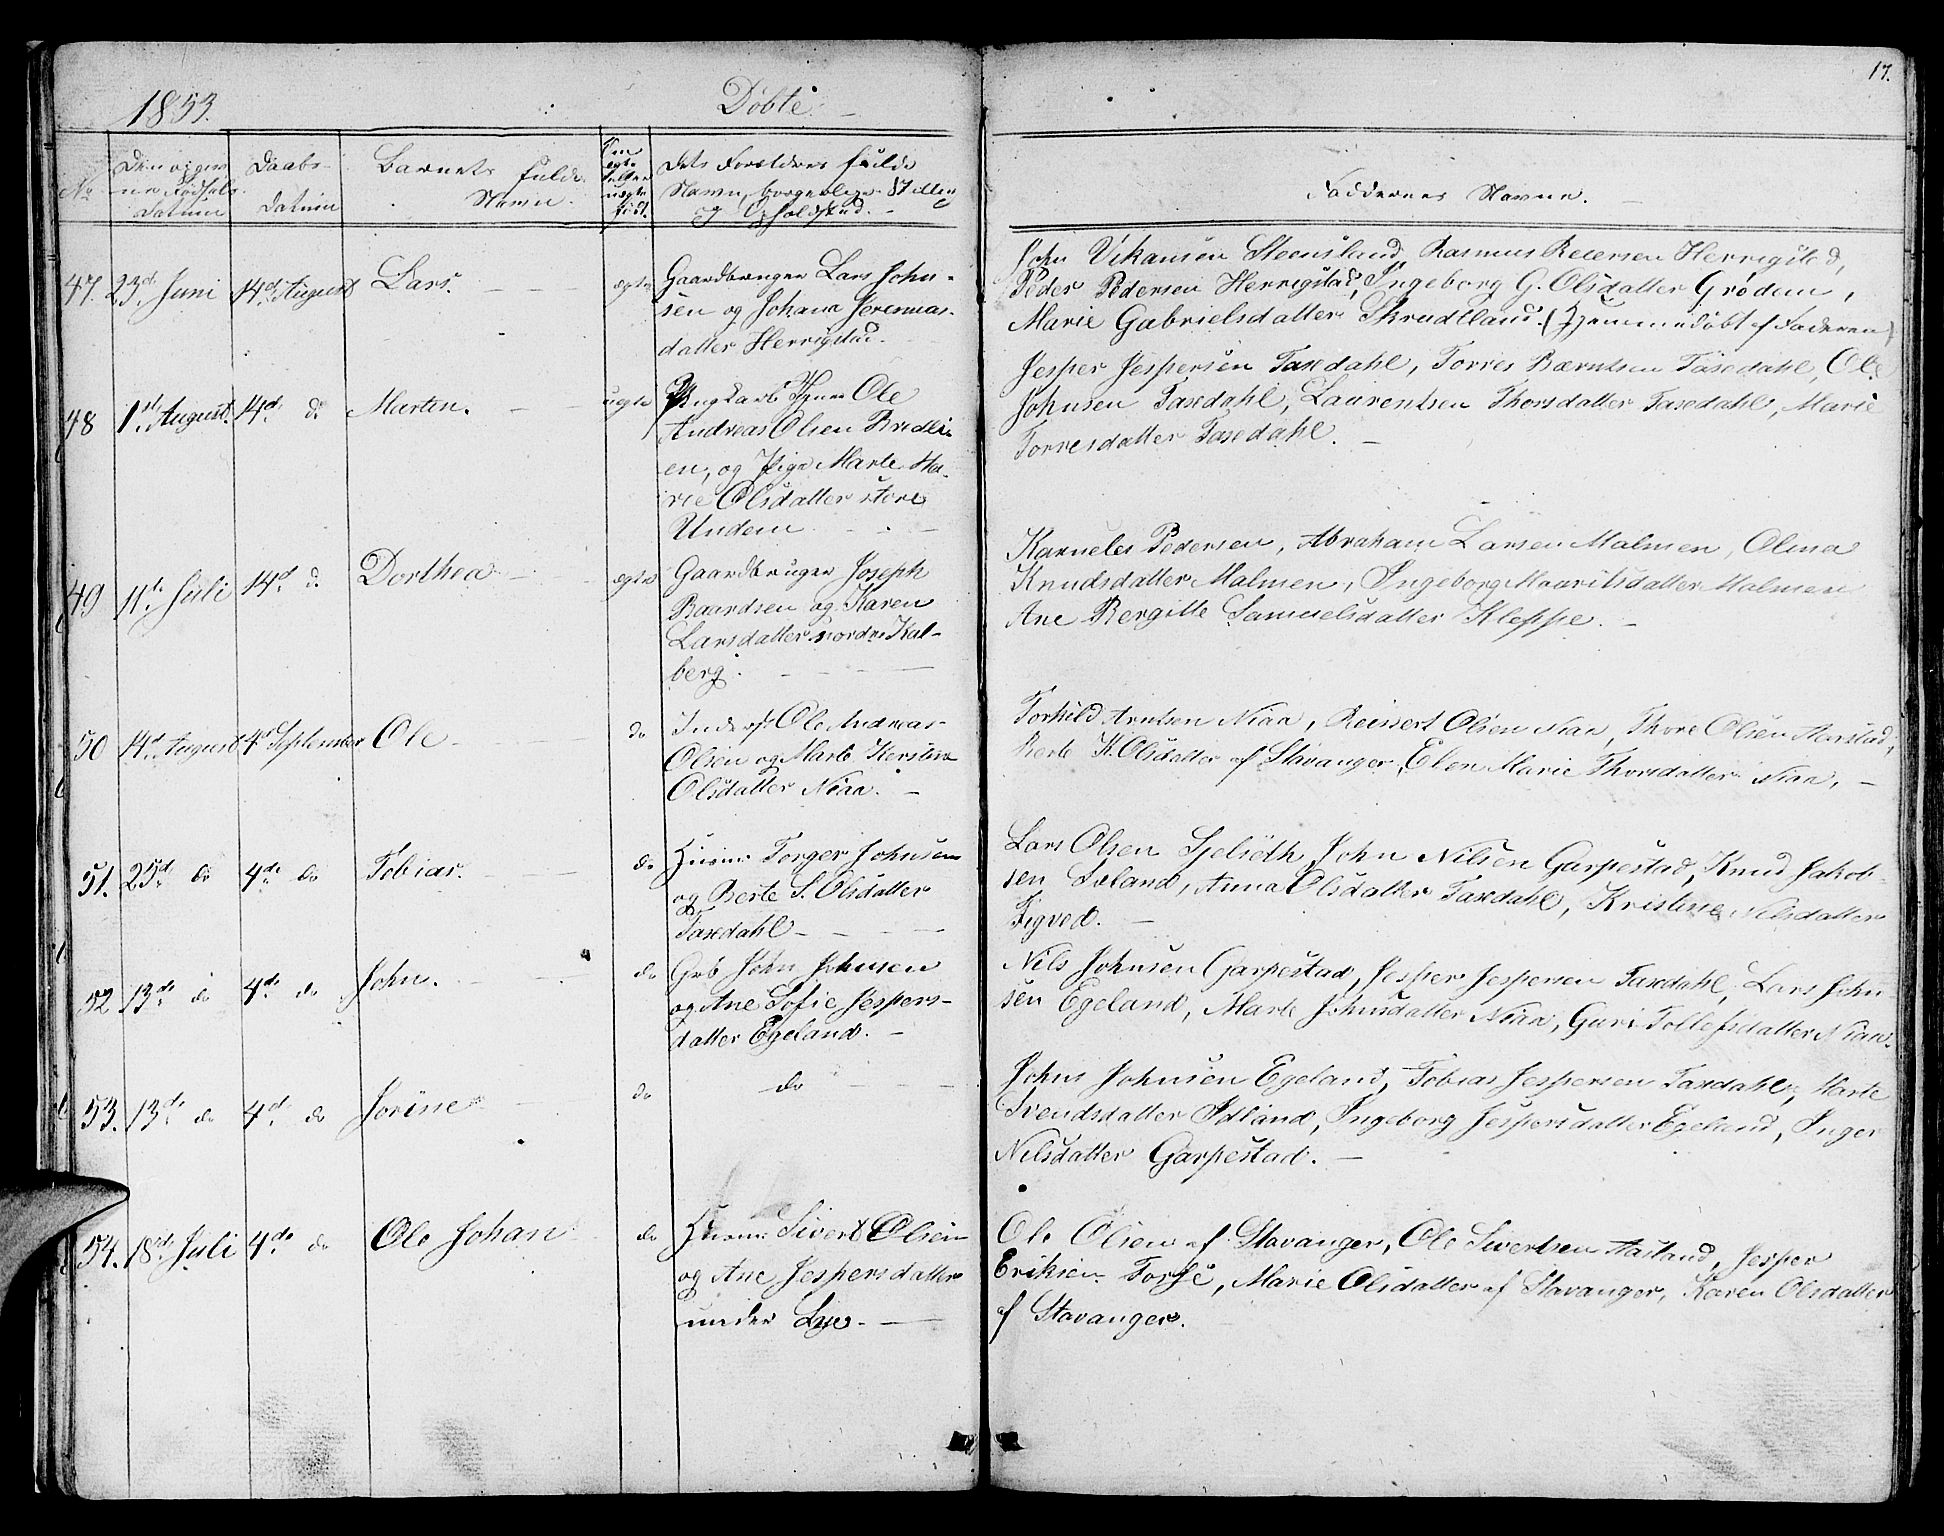 17.
1853.
Døbte.
No
Den nyføds Fødsels Datum
Daabs Datum
Barnets fulde Navn.
Om ægte eller uægte født.
Dets Forældres fulde
Navn, borgerlige Stilling
og Opholdsted.
Faddernes Navne.
47. 23d Juni 14d August Lars. ægte
Gaardbruger Lars John-
sen og Johana Jeremias-
datter Herrigstad.
John Steensland, Rasmus Herrigstad,
Peder Pedersen Herrigstad, Ingeborg G. Olsdatter Grødem,
Marie Gabrielsdatter Skrudtland. (Hjemmedøbt af Faderen)
48 1st August. 14d do Marten. uægte
Ungkarl Ole
Andreas Olsen Bredli-
en, og Pige Marte Ma-
rie Olsdatter store
Undem
Jesper Jespersen Taxedahl, Torres Berntsen Taxedahl, Ole
Johnsen Taxedahl, Laurentsen Thorsdatter Taxedahl, Marie
Torresdatter Taxedahl.
49 11te Juli 14d do Dorthea ægte
Gaardbruger Joseph
Baardsen og Karen
Larsdatter nordre Kal-
berg.
Karneles Pedersen, Abraham Larsen Malmen, Olena
Knudsdatter Malmen, Ingeborg Mauritsdatter Malmen
Ane Bergitte Samuelsdatter Kleppe.
50 14d August 4d September Ole do
Inderst Ole Andreas
Olsen og Marte Kerstine
Olsdatter Niaa.
Torkild Arntsen Niaa, Reinert Olsen Niaa, Thore Olsen Aarstad,
Berte K. Olsdatter af Stavanger, Elen Marie Thorsdatter Niaa,
51. 25d do 4de do Tobias. do
Husm: Torger Johnsen
og Berte S. Olsdatter
Taxedahl
Lars Olsen Sjelsöth, John Nilsen Garpestad, Knud Jakob-
sen Sæland, Anna Olsdatter Taxedahl, Kristine Nilsdatter
Sigved.
52 13de do 4de do John. do
Grb John Johnsen
og Ane Sofie Jespers-
datter Egeland.
Nils Johnsen Garpestad, Jesper Jespersen Taxedahl, Lars John-
sen Egeland, Marte Johnsdatter Niaa, Guri Tollefsdatter Niaa.
53. 13de do 4d do Jorine do
do
Johns Johnsen Egeland, Tobias Jespersen Taxdahl, Marte
Svendsdatter Idland, Ingeborg Jespersdatter Egeland, Inger
Nilsdatter Garpestad.
54. 18de Juli 4de do Ole Johan do
Husm: Sivert Olsen
og Ane Jespersdatter
under Lye.
Ole Olsen af Stavanger, Ole Sivertsen Aasland, Jesper
Eriksen Torse, Marie Olsdatter af Stavanger, Karen Olsdatter
af Stavanger.